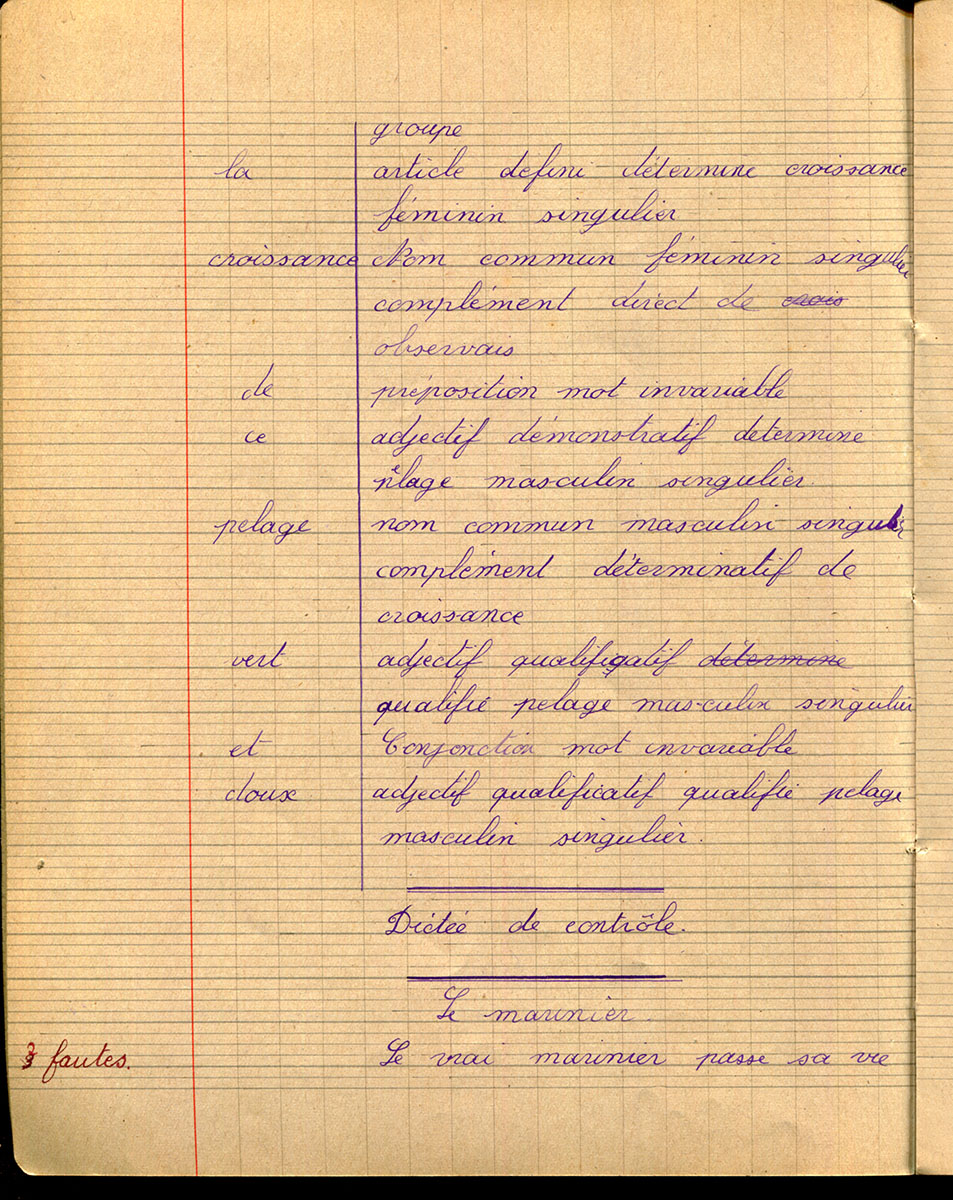 groupe
la article defini détermine croissance
féminin singulier
croissance Nom commun féminin singulier
complément direct de crois
observais
de préposition mot invariable
ce adjectif démonstratif determine
pelage masculin singulier.
pelage nom commun masculin singulier
complément déterminatif de
croissance
vert adjectif qualificatif détermine
qualifie pelage masculin singulier
et Conjonction mot invariable
doux adjectif qualificatif qualifie pelage
masculin singulier.
Dictée de contrôle.
Le marinier.
fautes. Le vrai marinier passe sa vie